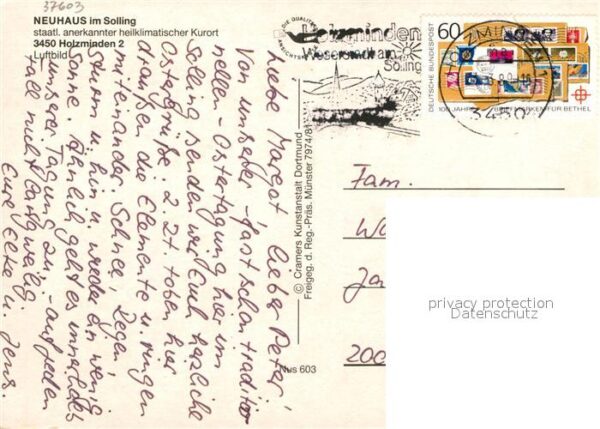 37603
NEUHAUS im Solling
staatl. anerkannter heilklimatischer Kurort
3450 Holzminden 2
Luftbild
Liebe Margot, lieber Peter!
Von unserer - fast schon traditio-
nellen - Ostertagung hier im
Solling senden wir Euch herzliche
Ostergrüße. Z. Zt. toben hier
draußen die Elemente u. ringen
miteinander Schnee, Regen,
Sturm u. hin u. wieder ein wenig
Sonne. Ähnlich geht es innerhalb
unserer Tagung zu, - auf jeden
Fall nicht langweilig.
Eure Elke u. Jens.
© Cramers Kunstanstalt Dortmund
Freigeg. d. Reg.-Präs. Münster 7974/81
Nus 603
Holzminden
Weserstadt am
Solling
60
DEUTSCHE BUNDESPOST
100 JAHRE BRIEFMARKEN FÜR BETHEL
HOLZMINDEN 1
3450
Fam.
200
privacy protection
Datenschutz